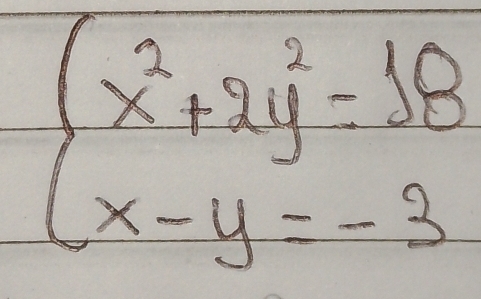 x² + 2y² = 18
x - y = - 3